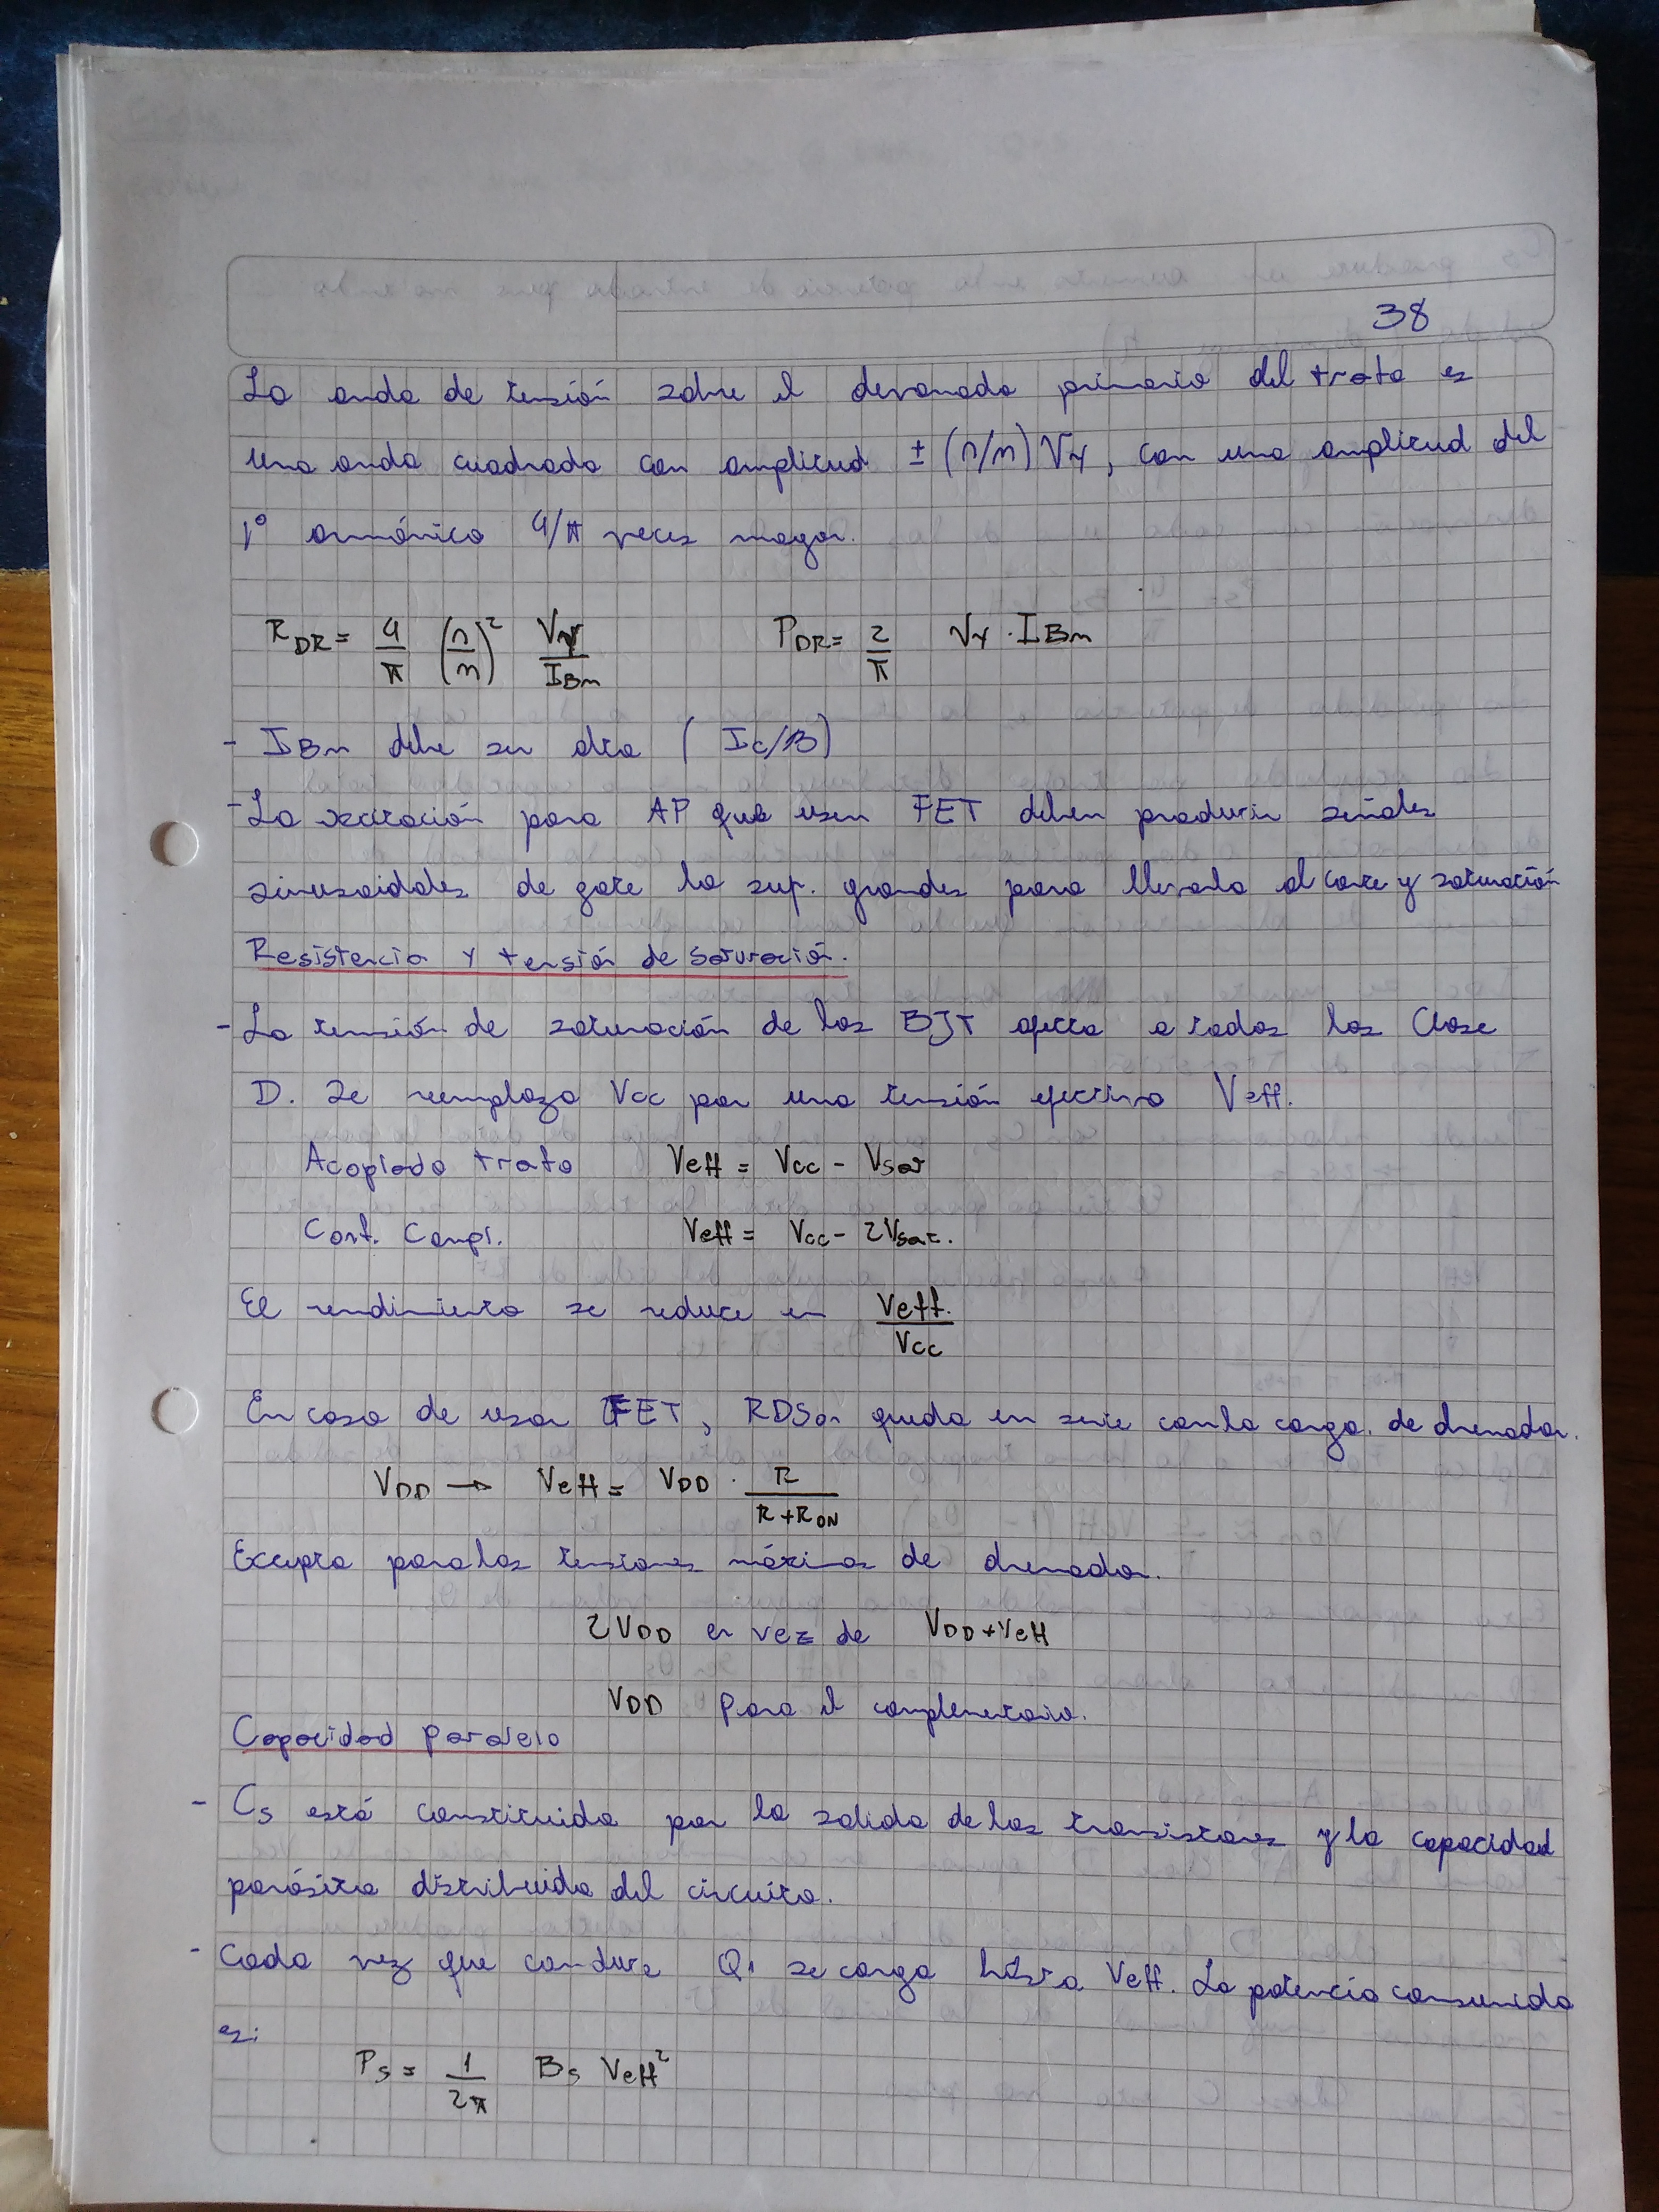 38
La onda de tensión sobre el devanado primario del trafo es
una onda cuadrada con amplitud ± (n/m) Vγ, con una amplitud del
1° armónico 4/π veces mayor.
R_DR = 4/π (n/m)² Vγ/I_Bm    P_DR = 2/π Vγ · I_Bm
- I_Bm debe ser alta ( Ic/β)
- La excitación para AP que usen FET deben producir señales
sinusoidales de gate lo suf. grandes para llevarlo al corte y saturación
Resistencia y tensión de saturación.
- La tensión de saturación de los BJT afecta a todos los Clase
D. Se remplaza Vcc por una tensión efectiva Veff.
Acoplado trafo    Veff = Vcc - Vsat
Conf. Compl.    Veff = Vcc - 2Vsat.
El rendimiento se reduce en Veff./Vcc
En caso de usar FET, RDSon queda en serie con la carga. de drenador.
V_DD → Veff = V_DD · R/(R+R_ON)
Excepto para las tensiones máximas de drenador.
2V_DD en vez de V_DD+Veff
V_DD para el complementario.
Capacidad paralelo
- Cs está constituida por la salida de los transistores y la capacidad
parásita distribuida del circuito.
- Cada vez que conduce Q1 se carga hasta Veff. La potencia consumida
es:
Ps = 1/2π Bs Veff²